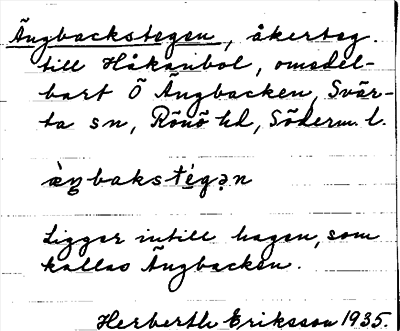 Ängbackstegen, åkerteg
till Håkanbol, omedel-
bart Ö Ängbacken, Svär-
ta sn, Rönö hd, Söderm. l.
Ligger intill hagen, som
kallas Ängbacken.
Herberth Eriksson 1935.